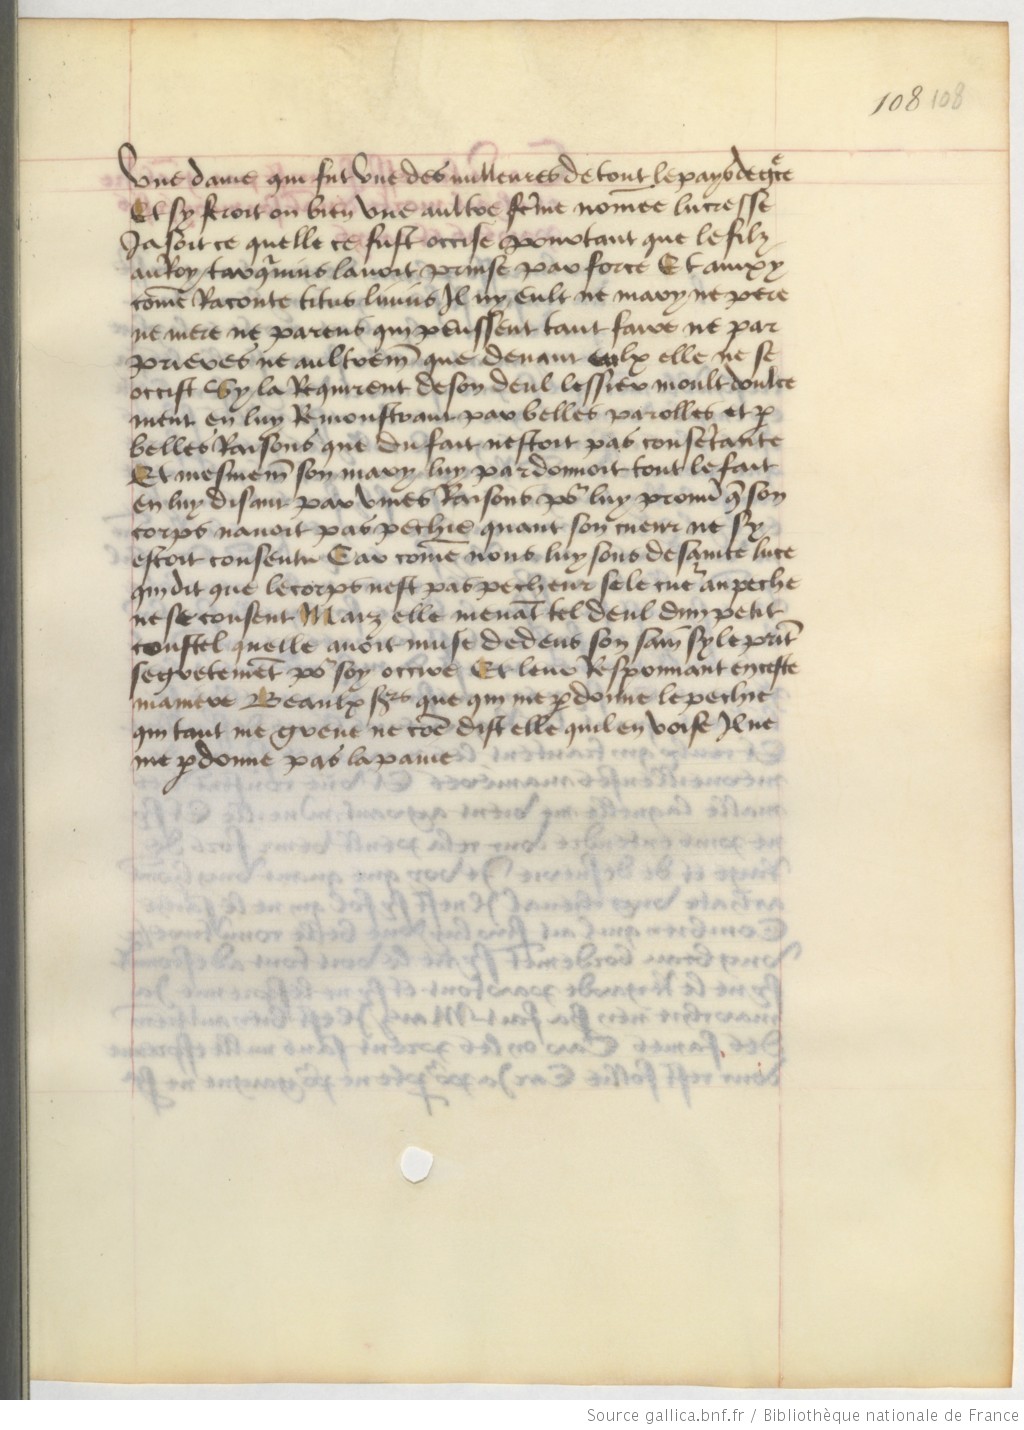 108 108
Une dame qui fut Une des milleures de tout le pays de gr̃ce
Et sy feroit on bien Une aultre fc̃me nom̃ee lucresse
Ja soit ce quelle ce fust occise pourtant que le filz
au Roy tarquinius lauoit prinse par force Et auxy
com̃e Raconte titus liuius Il ny eult ne mary ne pere
ne mere ne parens qui peussent tant faire ne par
prieres ne aultrem̃ que deuant eulx elle ne se
occist Sy la Requirent de son deul lessier moult doulce
ment en luy Remonstrant par belles parolles et p
belles Raisons que du fait nestoit pas consẽtante
Et mesmem̃ son mary luy pardonnoit tout le fait
en luy disant par viues Raisons po luy prouu q̃ son
corps nauoit pas pechie quant son cueur ne sy
estoit consentu Car com̃e nous luy sons de saincte luce
qui dit que le corps nest pas pecheur se le cuer au peche
ne se consent Marz elle menãt tel deul dun petit
coustel quelle auoit muse dedens son sain sy le prĩt
segretemẽt po soy occire Et leur Responnant en ceste
maniere Beaulx srs que qui me pdonne le pechie
qui tant me greue ne coẽ dist elle quil en voise Il ne
me pdonne pas la paine
Source gallica.bnf.fr / Bibliothèque nationale de France